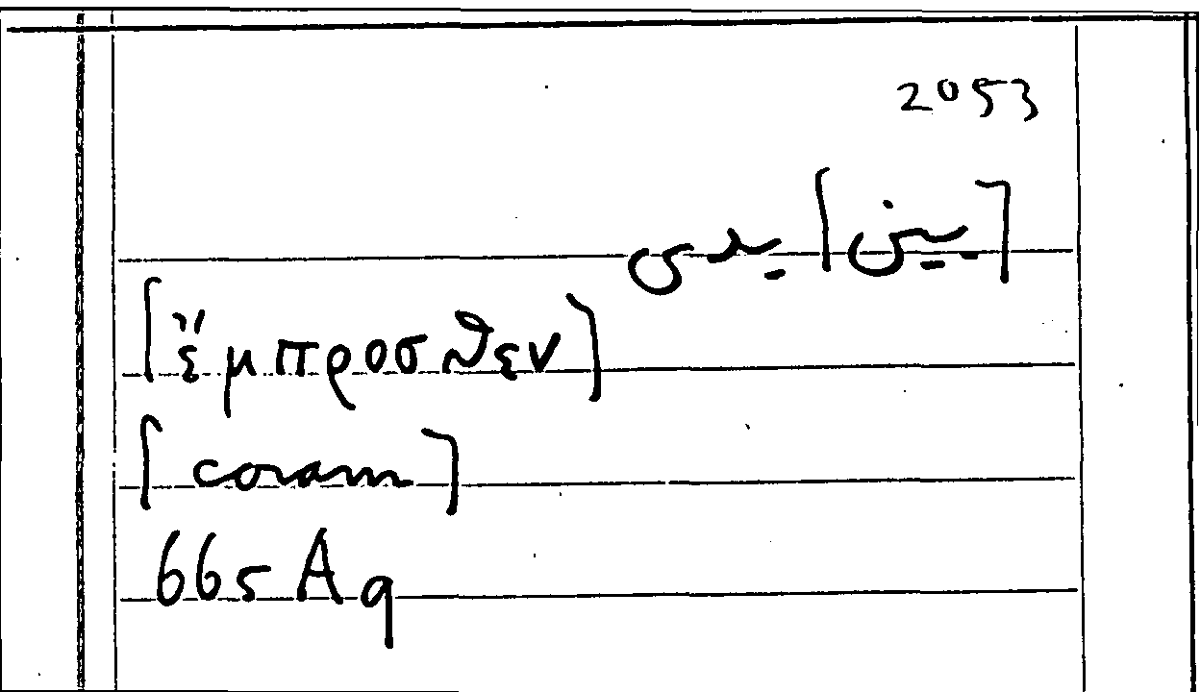 2053
[بين] يدى
[ἔμπροσθεν]
[coram]
665 A 9